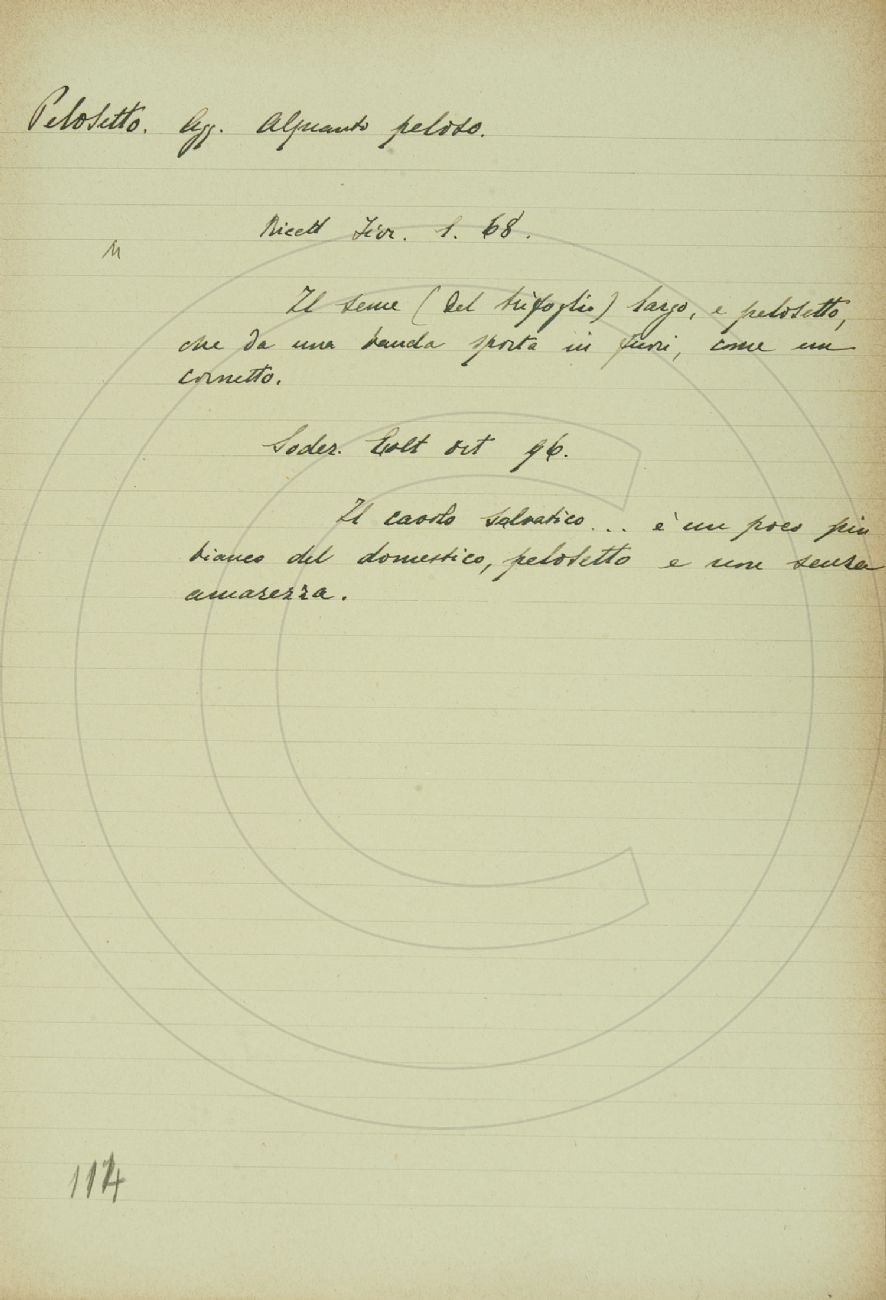 Pelosetto. Agg. Alquanto peloso.
Ricett Fior. 1. 68.
M
Il seme (del trifoglio) largo, e pelosetto,
che da una banda sporta in fuori, come un
cornetto.
Soder. Colt ort 96.
Il cavolo salvatico... è un poco più
bianco del domestico, pelosetto e non senza
amarezza.
114